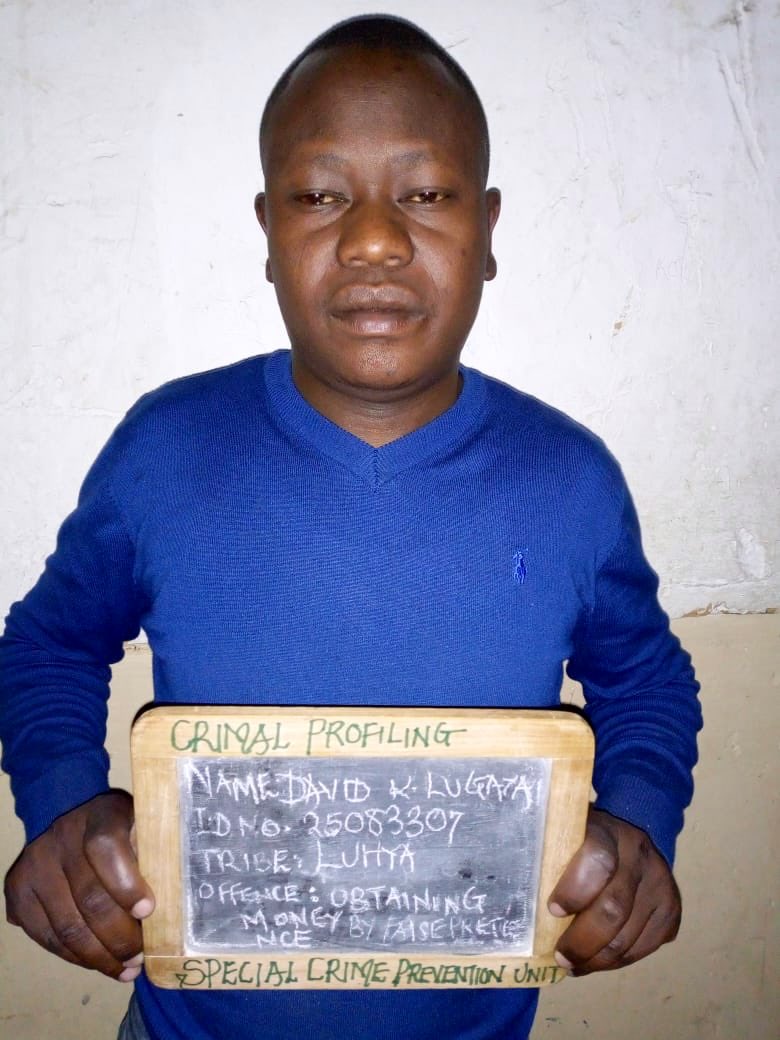 CRIMAL PROFILING
NAME DAVID K. LUGATA
ID NO. 25083307
TRIBE: LUHYA
OFFENCE: OBTAINING
MONEY BY FALSE PRETE
NCE
SPECIAL CRIME PREVENTION UNIT